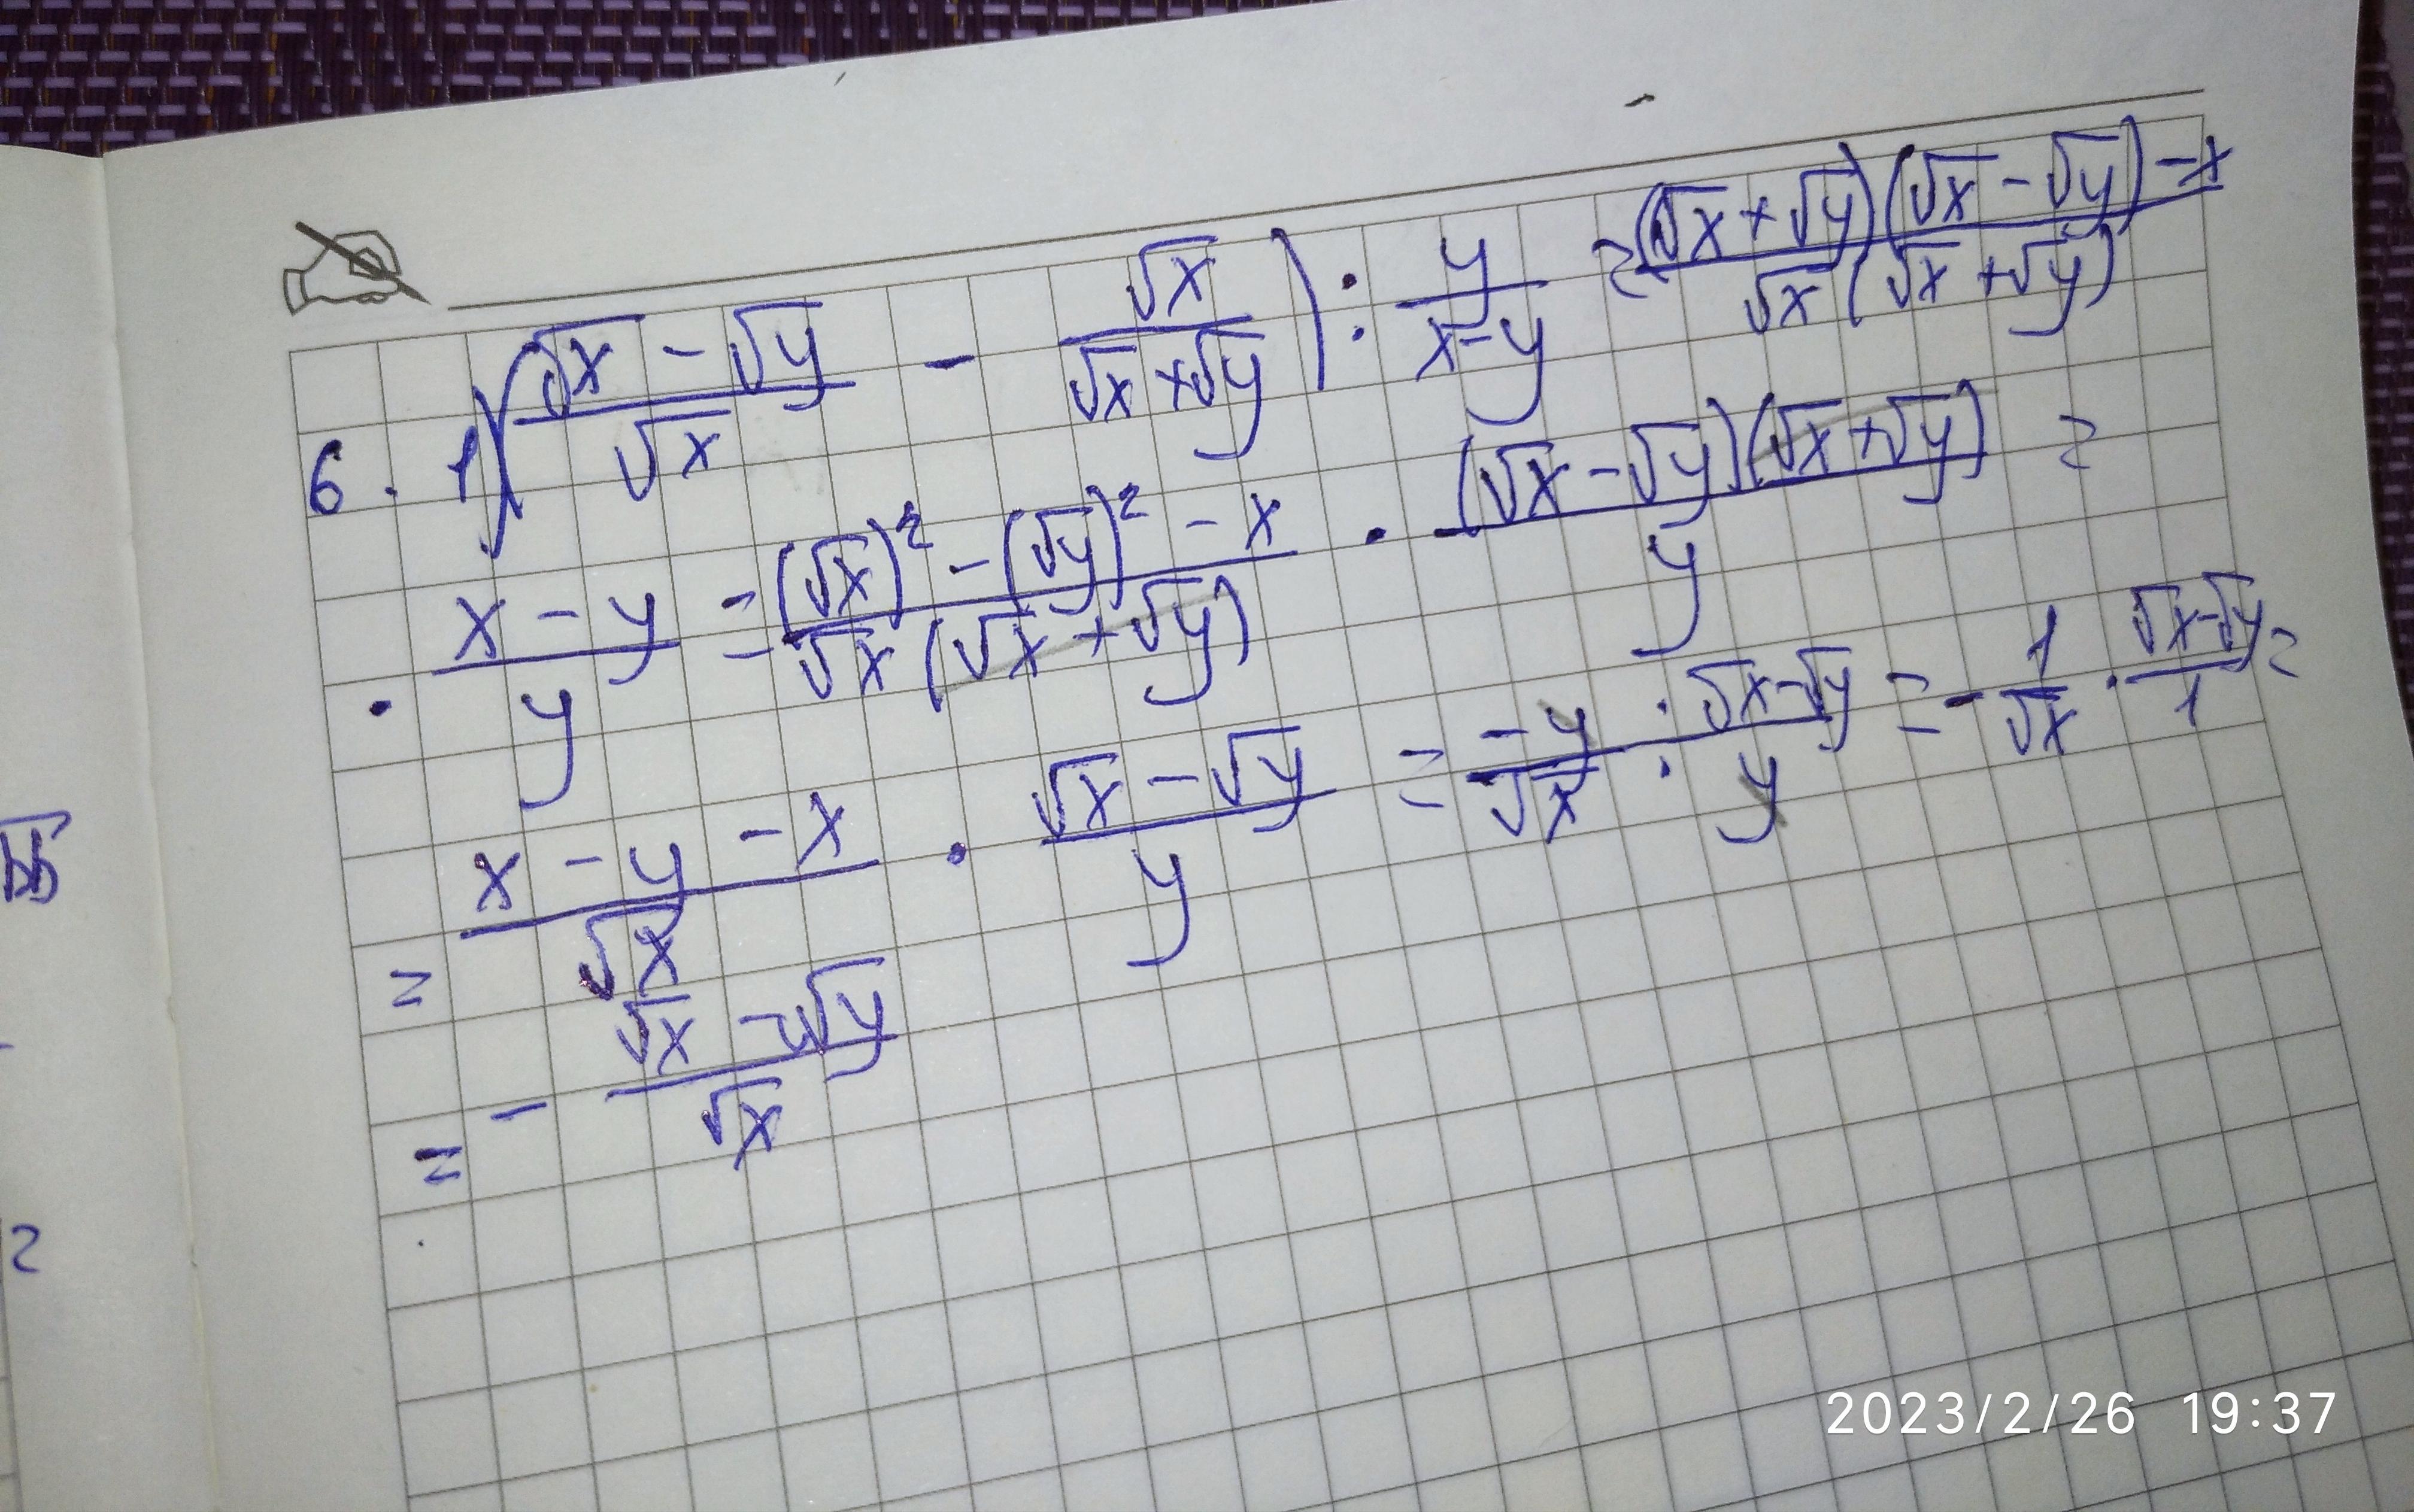 6. 1) ((√x − √y)/√x − √x/(√x + √y)) : y/(x−y) = ((√x + √y)(√x − √y) − x)/(√x(√x + √y))
· (x − y)/y = ((√x)² − (√y)² − x)/(√x(√x + √y)) · ((√x − √y)(√x + √y))/y =
= (x − y − x)/√x · (√x − √y)/y = −y/√x · (√x−√y)/y = − 1/√x · (√x−√y)/1 =
= − (√x − √y)/√x
2
2023/2/26 19:37